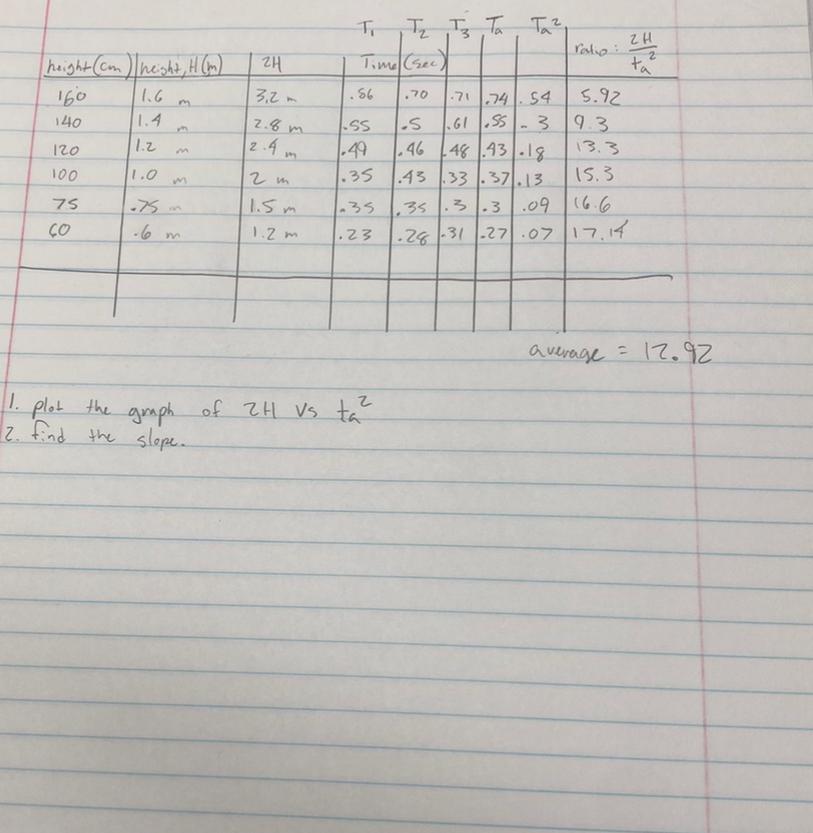 T₁ T₂ T₃ Ta Ta²
height (cm) height, H (m) 2H Time (sec) ratio: 2H/ta²
160 1.6 m 3.2 m .86 .70 .71 .74 .54 5.92
140 1.4 m 2.8 m .55 .5 .61 .55 .3 9.3
120 1.2 m 2.4 m .49 .46 .48 .43 .18 13.3
100 1.0 m 2 m .35 .43 .33 .37 .13 15.3
75 .75 m 1.5 m .35 .35 .3 .3 .09 16.6
60 .6 m 1.2 m .23 .28 .31 .27 .07 17.14
average = 12.92
1. plot the graph of 2H vs ta²
2. find the slope.